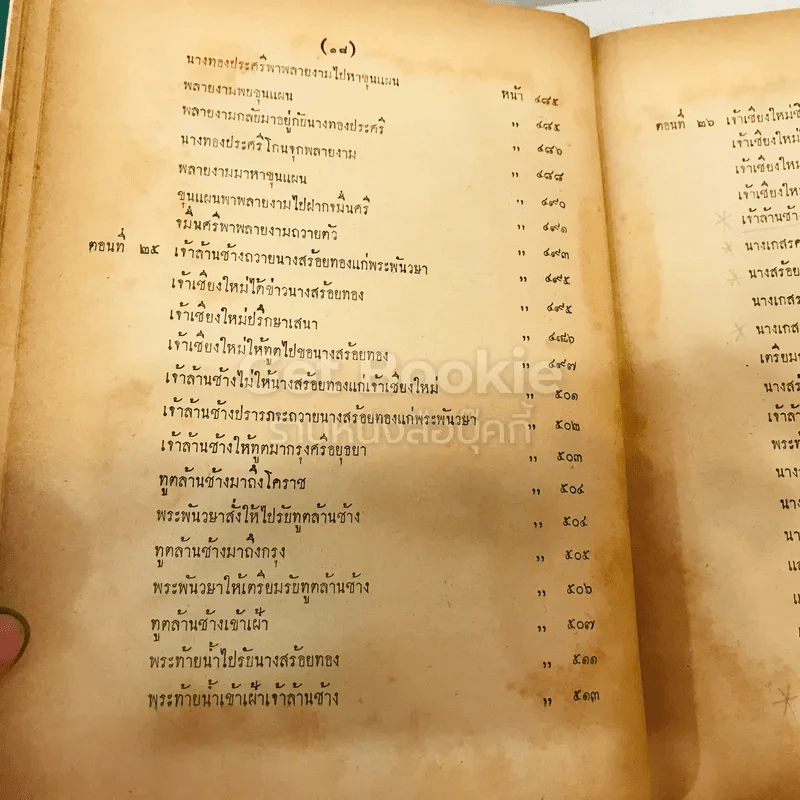 (๑๘)
นางทองประศรีพาพลายงามไปหาขุนแผน หน้า ๔๘๕
พลายงามพบขุนแผน " ๔๘๕
พลายงามกลับมาอยู่กับนางทองประศรี " ๔๘๖
นางทองประศรีโกนจุกพลายงาม " ๔๘๘
พลายงามมาหาขุนแผน " ๔๙๐
ขุนแผนพาพลายงามไปฝากจมื่นศรี " ๔๙๑
จมื่นศรีพาพลายงามถวายตัว " ๔๙๓
ตอนที่ ๒๕ เจ้าล้านช้างถวายนางสร้อยทองแก่พระพันวษา " ๔๙๕
เจ้าเชียงใหม่ได้ข่าวนางสร้อยทอง " ๔๙๕
เจ้าเชียงใหม่ปรึกษาเสนา " ๔๙๖
เจ้าเชียงใหม่ให้ทูตไปขอนางสร้อยทอง " ๔๙๗
เจ้าล้านช้างไม่ให้นางสร้อยทองแก่เจ้าเชียงใหม่ " ๕๐๑
เจ้าล้านช้างปรารภจะถวายนางสร้อยทองแก่พระพันวษา " ๕๐๒
เจ้าล้านช้างให้ทูตมากรุงศรีอยุธยา " ๕๐๓
ทูตล้านช้างมาถึงโคราช " ๕๐๔
พระพันวษาสั่งให้ไปรับทูตล้านช้าง " ๕๐๔
ทูตล้านช้างมาถึงกรุง " ๕๐๕
พระพันวษาให้เตรียมรับทูตล้านช้าง " ๕๐๖
ทูตล้านช้างเข้าเฝ้า " ๕๐๗
พระท้ายน้ำไปรับนางสร้อยทอง " ๕๑๑
พระท้ายน้ำเข้าเฝ้าเจ้าล้านช้าง " ๕๑๓
Get Bookie
ร้านหนังสือบุ๊คกี้
ตอนที่ ๒๖ เจ้าเชียงใหม่
เจ้าเชียงใหม่
เจ้าเชียงใหม่
เจ้าเชียงใหม่
เจ้าล้านช้าง
นางเกสร
นางสร้อย
นางเกสร
นางเกส
เตรียม
นางสร้
เจ้าล้า
พระท้
นาง
นาง
นา